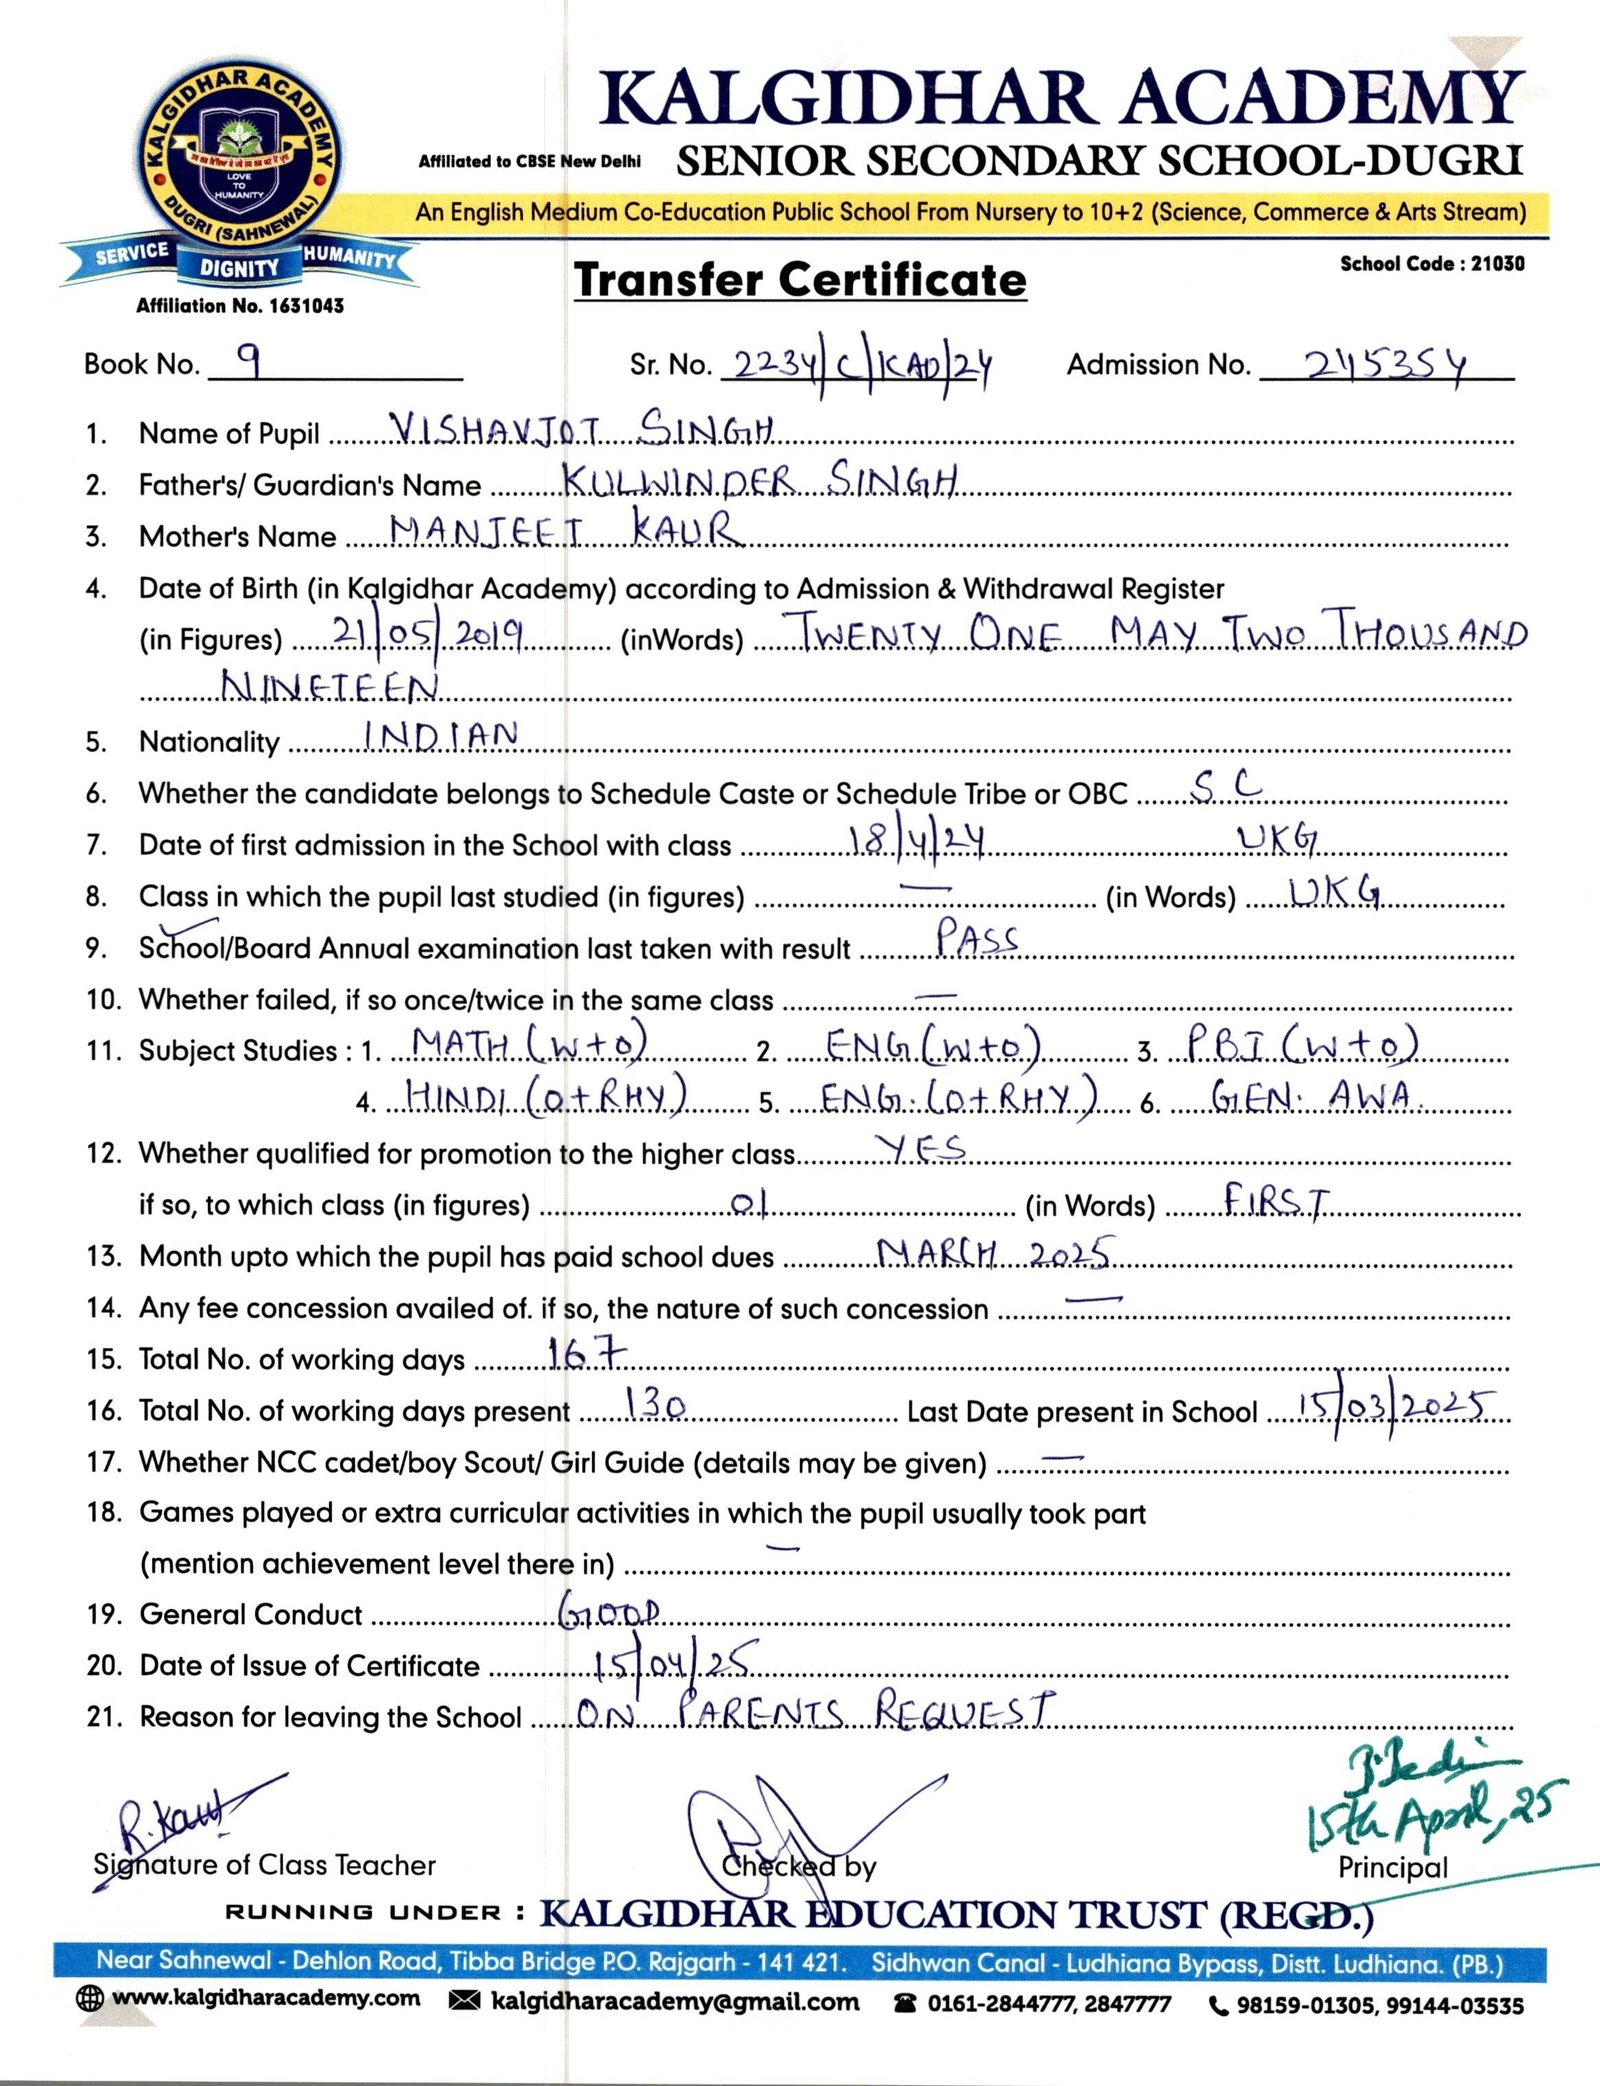 KALGIDHAR ACADEMY
DUGRI (SAHNEWAL)
LOVE
TO
HUMANITY
SERVICE DIGNITY HUMANITY
Affiliation No. 1631043
KALGIDHAR ACADEMY
Affiliated to CBSE New Delhi SENIOR SECONDARY SCHOOL-DUGRI
An English Medium Co-Education Public School From Nursery to 10+2 (Science, Commerce & Arts Stream)
School Code : 21030
Transfer Certificate
Book No. 9 Sr. No. 2234/C/KAD/24 Admission No. 245354
1. Name of Pupil VISHAVJOT SINGH
2. Father's/ Guardian's Name KULWINDER SINGH
3. Mother's Name MANJEET KAUR
4. Date of Birth (in Kalgidhar Academy) according to Admission & Withdrawal Register
(in Figures) 21/05/2019 (inWords) TWENTY ONE MAY TWO THOUSAND
NINETEEN
5. Nationality INDIAN
6. Whether the candidate belongs to Schedule Caste or Schedule Tribe or OBC SC
7. Date of first admission in the School with class 18/4/24 UKG
8. Class in which the pupil last studied (in figures) — (in Words) UKG
9. School/Board Annual examination last taken with result PASS
10. Whether failed, if so once/twice in the same class —
11. Subject Studies : 1. MATH (W+O) 2. ENG (W+O) 3. PBI (W+O)
4. HINDI (O+RHY) 5. ENG. (O+RHY) 6. GEN. AWA.
12. Whether qualified for promotion to the higher class YES
if so, to which class (in figures) 01 (in Words) FIRST
13. Month upto which the pupil has paid school dues MARCH 2025
14. Any fee concession availed of. if so, the nature of such concession —
15. Total No. of working days 167
16. Total No. of working days present 130 Last Date present in School 15/03/2025
17. Whether NCC cadet/boy Scout/ Girl Guide (details may be given) —
18. Games played or extra curricular activities in which the pupil usually took part
(mention achievement level there in) —
19. General Conduct GOOD
20. Date of Issue of Certificate 15/04/25
21. Reason for leaving the School ON PARENTS REQUEST
R. Kaur
15th April, 25
Signature of Class Teacher Checked by Principal
RUNNING UNDER : KALGIDHAR EDUCATION TRUST (REGD.)
Near Sahnewal - Dehlon Road, Tibba Bridge P.O. Rajgarh - 141 421. Sidhwan Canal - Ludhiana Bypass, Distt. Ludhiana. (PB.)
www.kalgidharacademy.com kalgidharacademy@gmail.com 0161-2844777, 2847777 98159-01305, 99144-03535